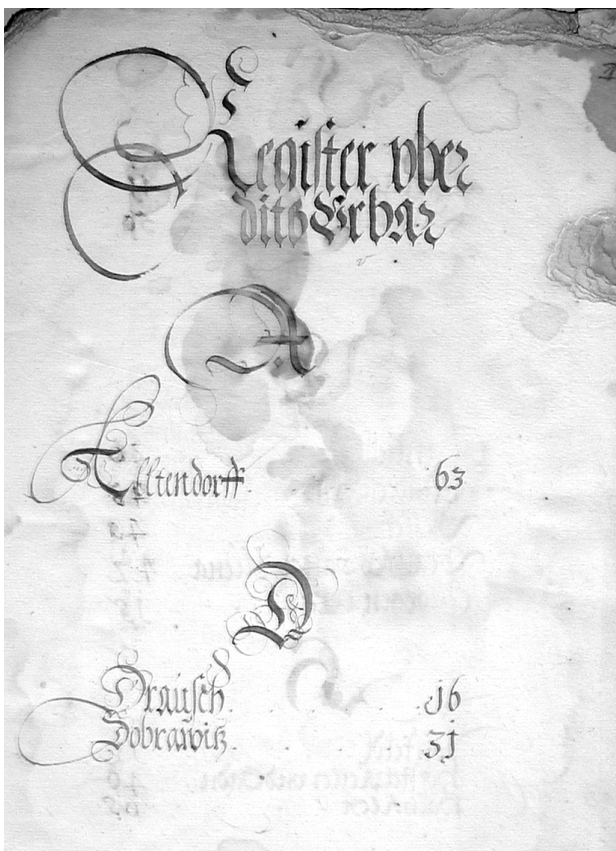 Register vber
ditz Vrbar
A
Altendorff. 63
D
Drausch. . . . 16
Dobrawitz. . . . 31